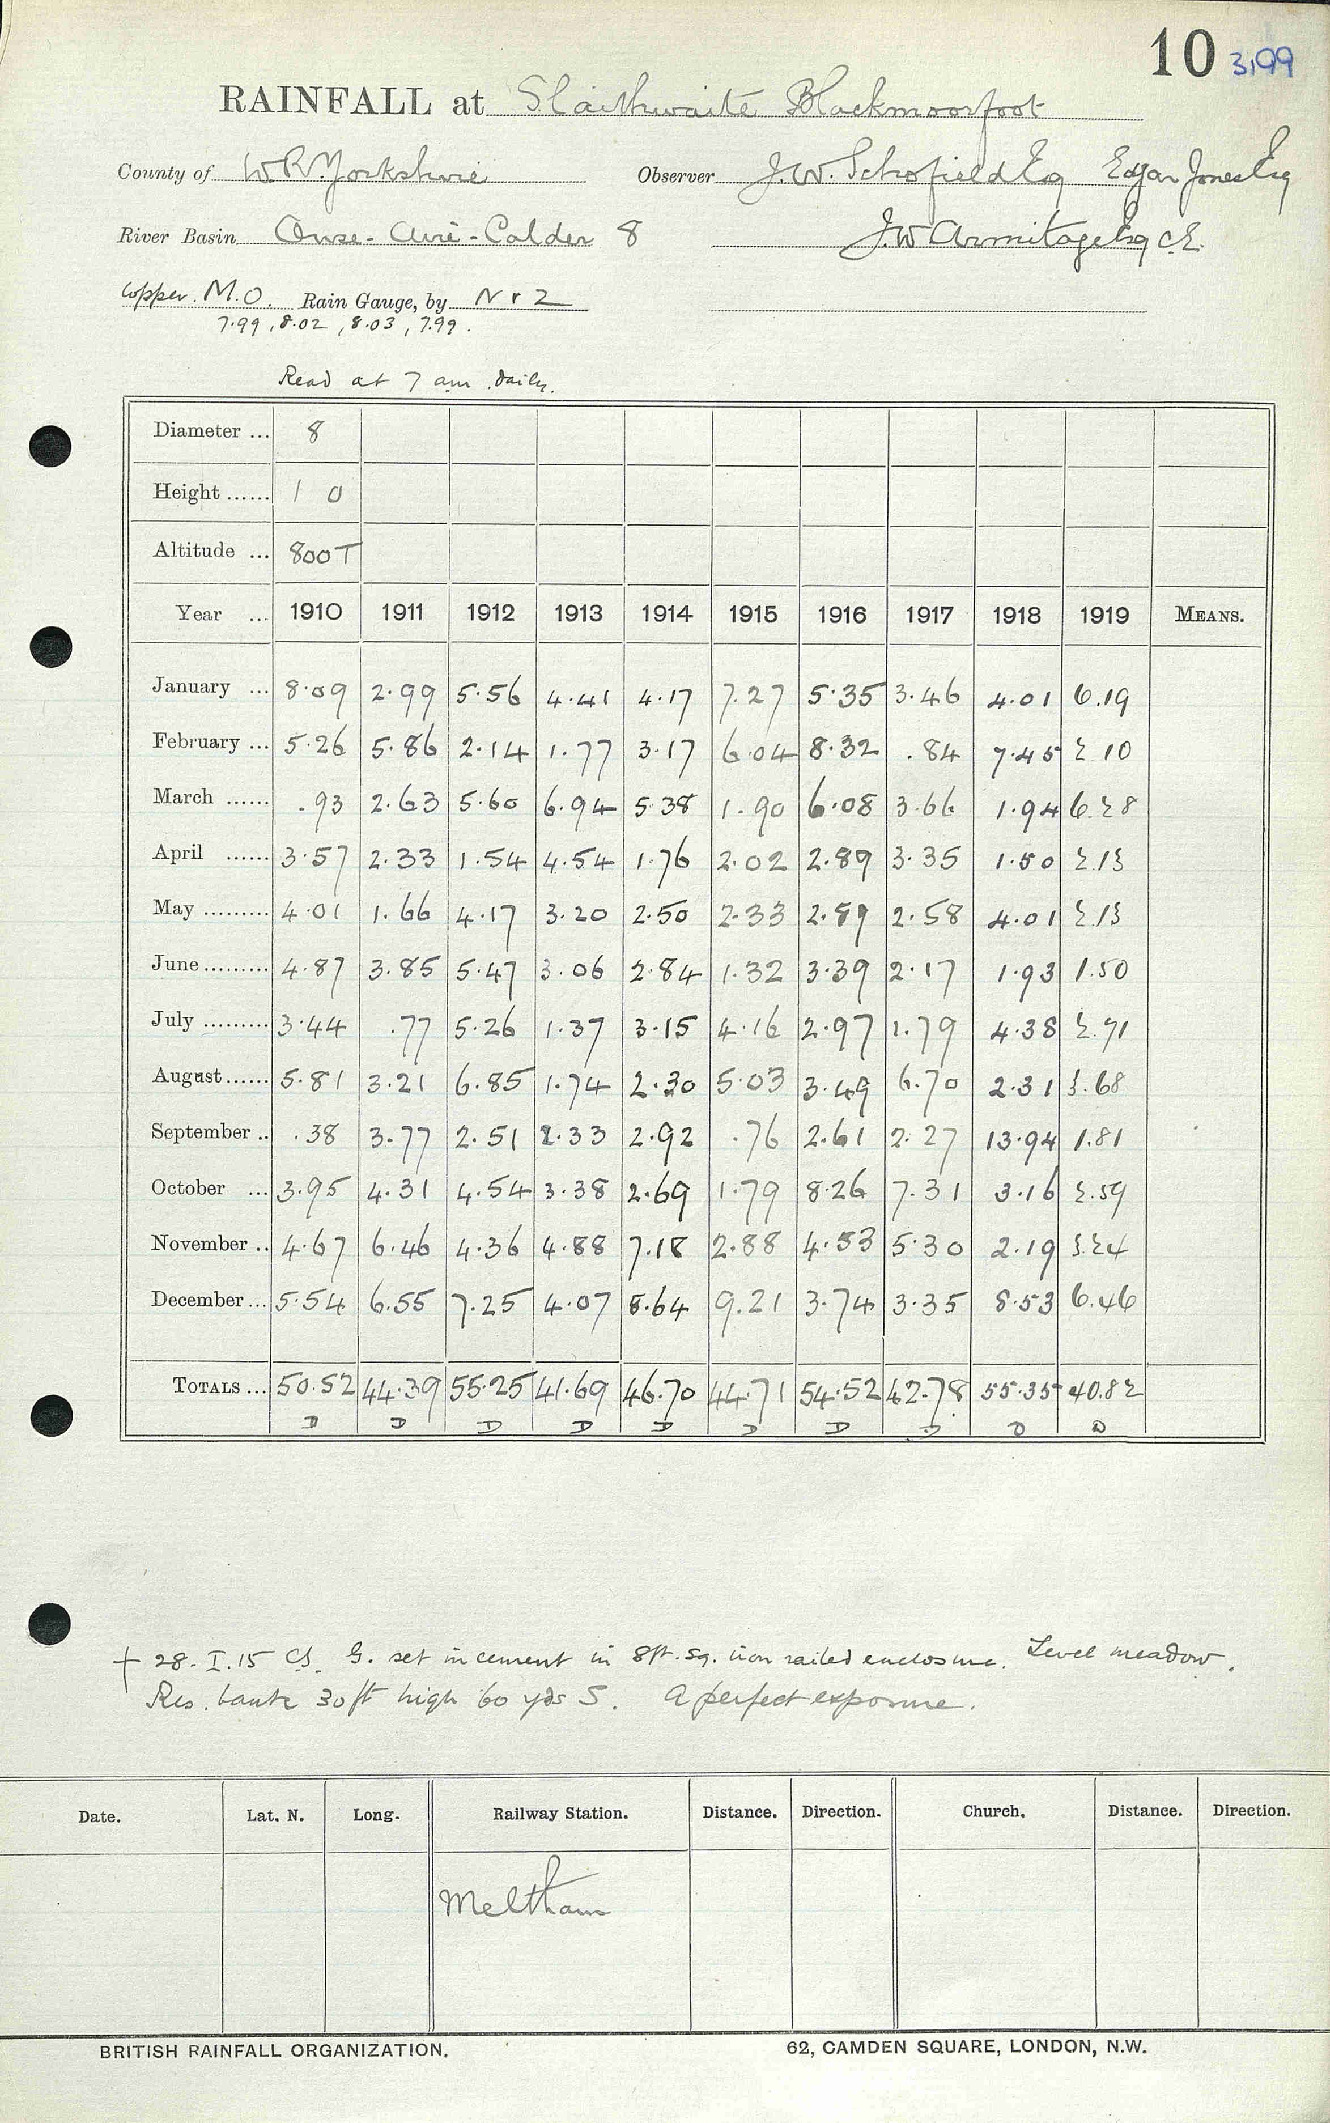 10 3199
RAINFALL at Slaithwaite Blackmoorfoot
County of W.R. Yorkshire Observer J.W. Schofield Esq Edgar Jones Esq
River Basin Ouse-Aire-Calder 8 J.W Armitage Esq C.E.
Copper. M.O. Rain Gauge, by N & Z
7.99, 8.02, 8.03, 7.99.
Read at 7 am daily.
Diameter ... 8
Height ...... 1 0
Altitude ... 800 T
Year ... 1910 1911 1912 1913 1914 1915 1916 1917 1918 1919 MEANS.
January ... 8.09 2.99 5.56 4.41 4.17 7.27 5.35 3.46 4.01 6.19
February ... 5.26 5.86 2.14 1.77 3.17 6.04 8.32 .84 7.45 2.10
March ...... .93 2.63 5.60 6.94 5.38 1.90 6.08 3.66 1.94 6.28
April ...... 3.57 2.33 1.54 4.54 1.76 2.02 2.89 3.35 1.50 2.13
May ......... 4.01 1.66 4.17 3.20 2.50 2.33 2.89 2.58 4.01 2.13
June ......... 4.87 3.85 5.47 3.06 2.84 1.32 3.39 2.17 1.93 1.50
July ......... 3.44 .77 5.26 1.37 3.15 4.16 2.97 1.79 4.38 2.71
August ...... 5.81 3.21 6.85 1.74 2.30 5.03 3.49 6.70 2.31 3.68
September .. .38 3.77 2.51 2.33 2.92 .76 2.61 2.27 13.94 1.81
October ... 3.95 4.31 4.54 3.38 2.69 1.79 8.26 7.31 3.16 2.59
November .. 4.67 6.46 4.36 4.88 7.18 2.88 4.53 5.30 2.19 3.24
December ... 5.54 6.55 7.25 4.07 8.64 9.21 3.74 3.35 8.53 6.46
TOTALS ... 50.52 44.39 55.25 41.69 46.70 44.71 54.52 42.78 55.35 40.82
D D D D D D D D D D
† 28.I.15 CS. G. set in cement in 8ft. sq. iron railed enclosure. Level meadow.
Res. bank 30ft high 60 yds S. A perfect exposure.
Date. Lat. N. Long. Railway Station. Distance. Direction. Church. Distance. Direction.
Meltham
BRITISH RAINFALL ORGANIZATION. 62, CAMDEN SQUARE, LONDON, N.W.